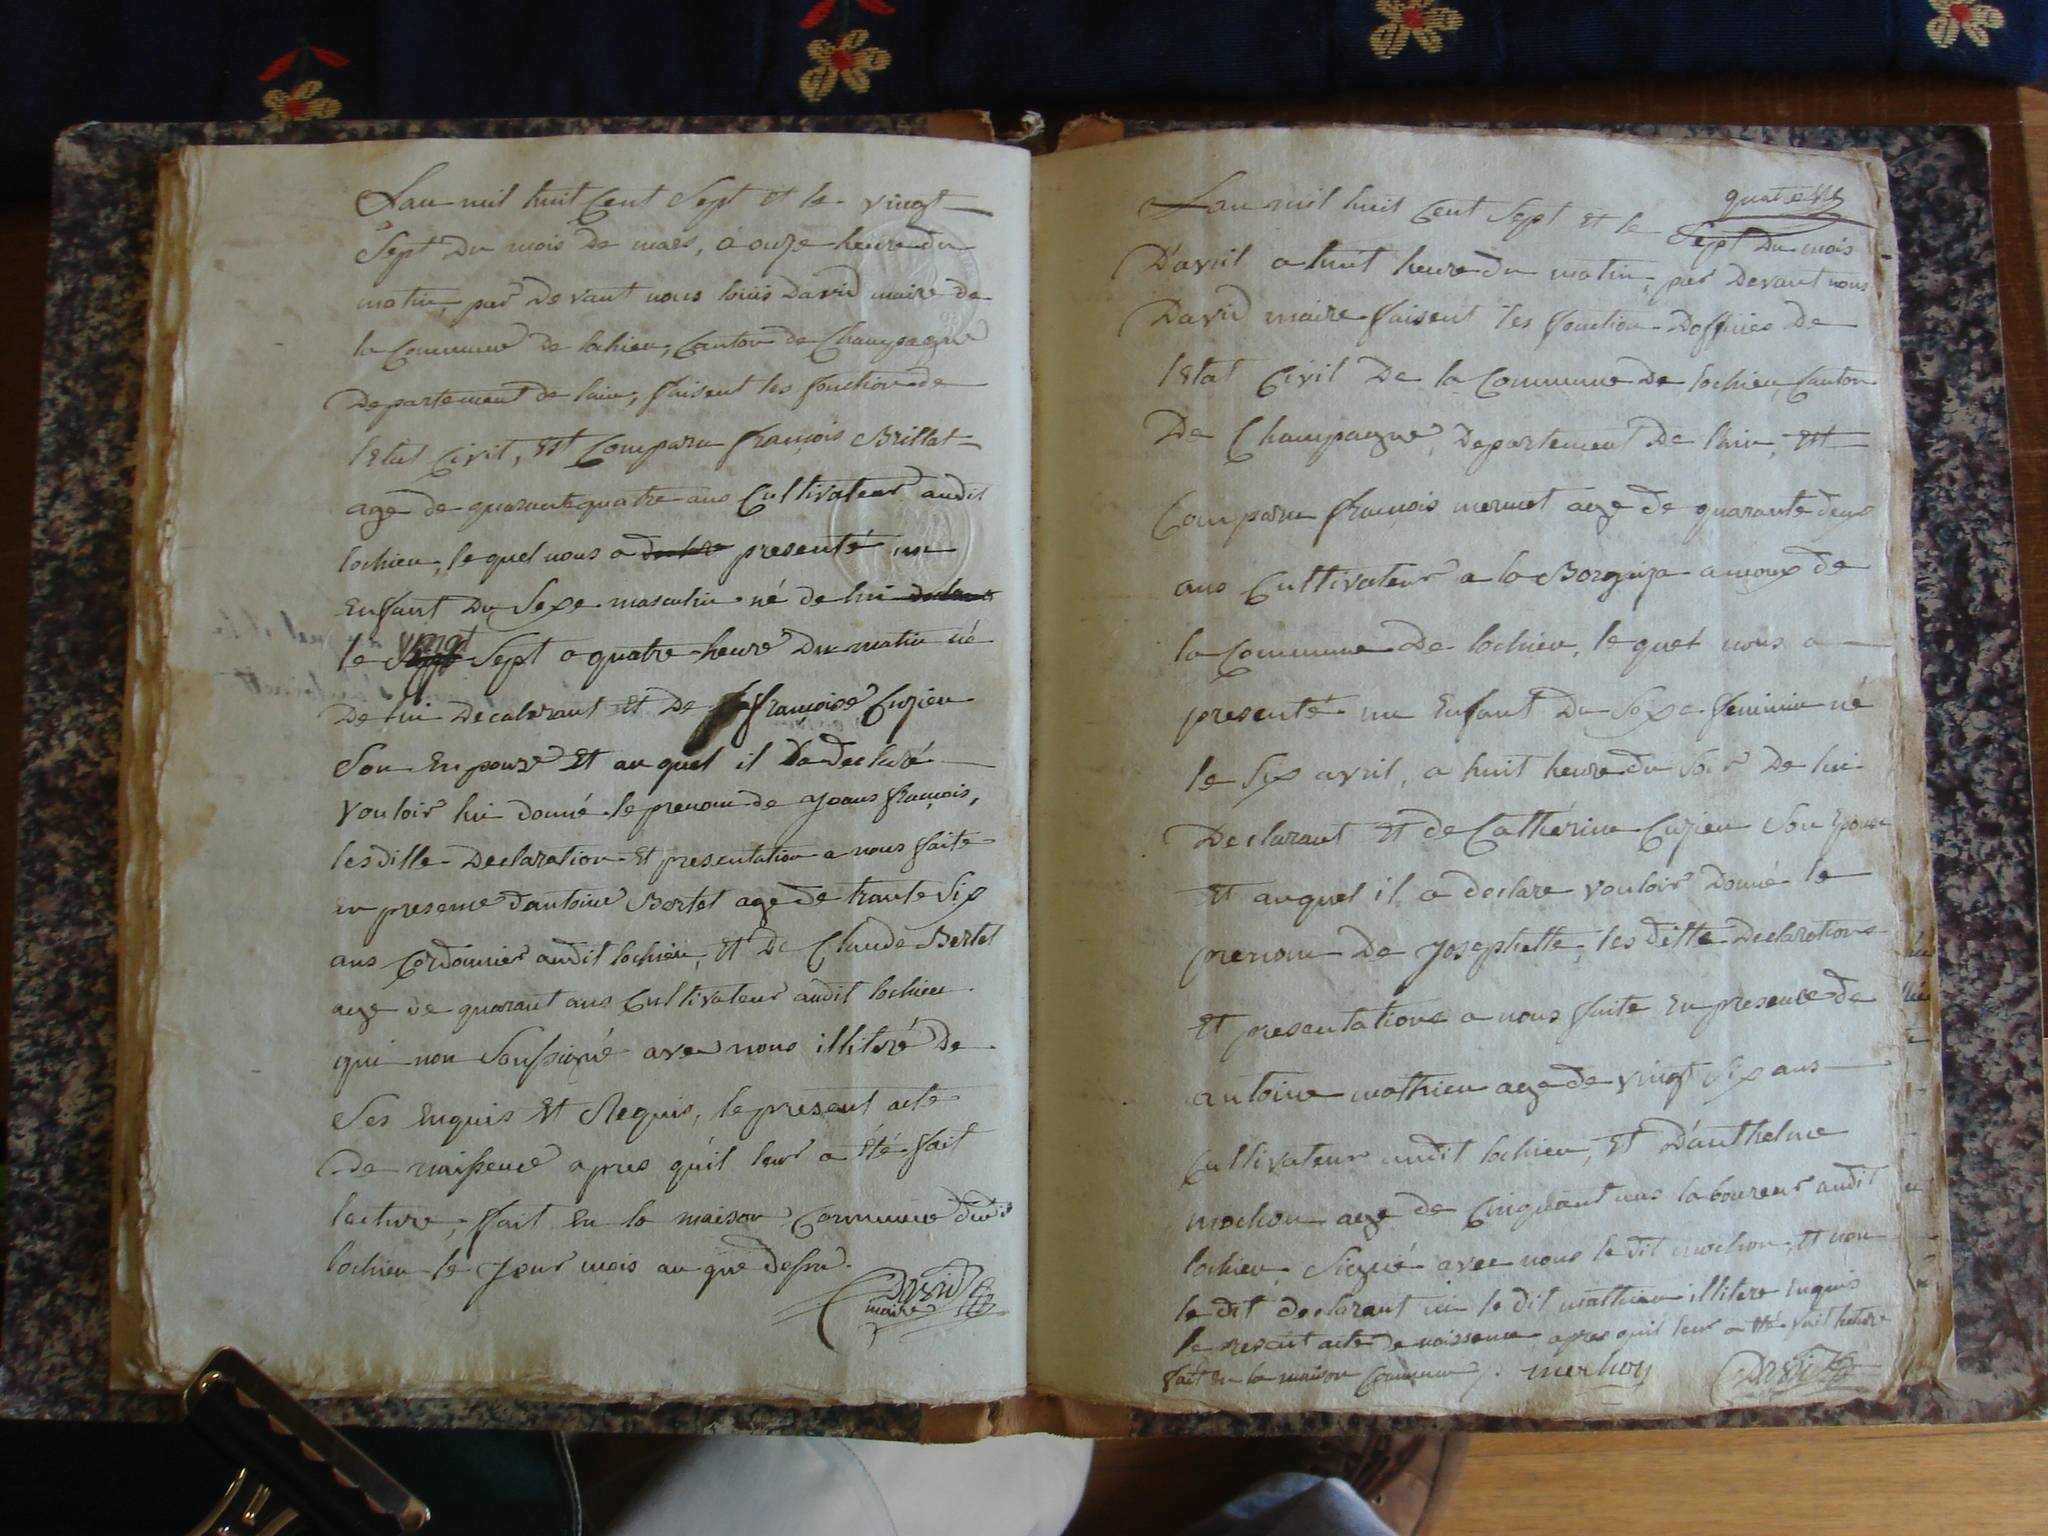 Lan mil huit Cent Sept et le vingt
Sept Du mois De mars, à onze heure du
matin, par De vant nous louis David maire de
la Commune De lochieu, Canton de Champagne
Departement de lain, faisent les fonction de
letat Civil, Est Comparu françois Brillat
age de quarante quatre ans Cultivateur audit
lochieu, le quel nous a presenté un
Enfant Du Sexe masculin né de lui
le vingt Sept a quatre heure Du matin né
De lui Decalarant Et De françoise Cuzieu
Son Enpouse Et au quel il Declaré
Vouloir lui donné le prenom de joans françois,
lesditte Declaration Et presentation a nous faite
en presence dantoine Bertet age De trante Six
ans Cordonnier audit lochieu, Et De Claude Bertet
age de quarant ans Cultivateur audit lochieu
qui non Soussigné avec nous illitéré De
Ses Enquis Et Requis, le present acte
De naissence apres qu'il leur a été fait
lecture, fait En la maison Commune dudit
lochieu le jour mois an que dessu.
David
maire
quatre
Lan mil huit Cent Sept Et le Sept Du mois
D'avril a huit heure du matin, par Devant nous
David maire faisent les fonction Dofficier De
letat Civil De la Commune De lochieu, Canton
De Champagne, Departement De lain, Est
Comparu françois mermet age de quarante deux
ans Cultivateur a la de
la Commune De lochieu, le quel nous a
presenté un Enfant Du Sexe feminin né
le Six avril, a huit heure du Soir De lui
Declarant Et de Catherine Cuzieu Son Epouse
Et auquel il a declare vouloir Donné le
prenom De josephette, les ditte Declarations
Et presentations a nous faite En presence de
antoine mathieu age de vingt Six ans
Cultivateur audit lochieu, Et D'anthelme
mochon age de Cinquant ans laboureur audit
lochieu, Signé avec nous le dit mochon, Et non
le dit declarant ni le dit mathieu illitere Enquis
le present acte de naissence apres quil leur a été fait lecture
fait En la maison Commune David